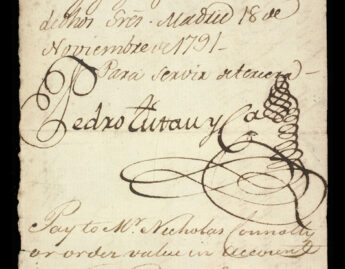 dichos Sres. Madrid 18 de
Noviembre de 1791.
Para servir de tercera
Pedro Tutau y Ca
Pay to Mr. Nicholas Connolly
or order value in account